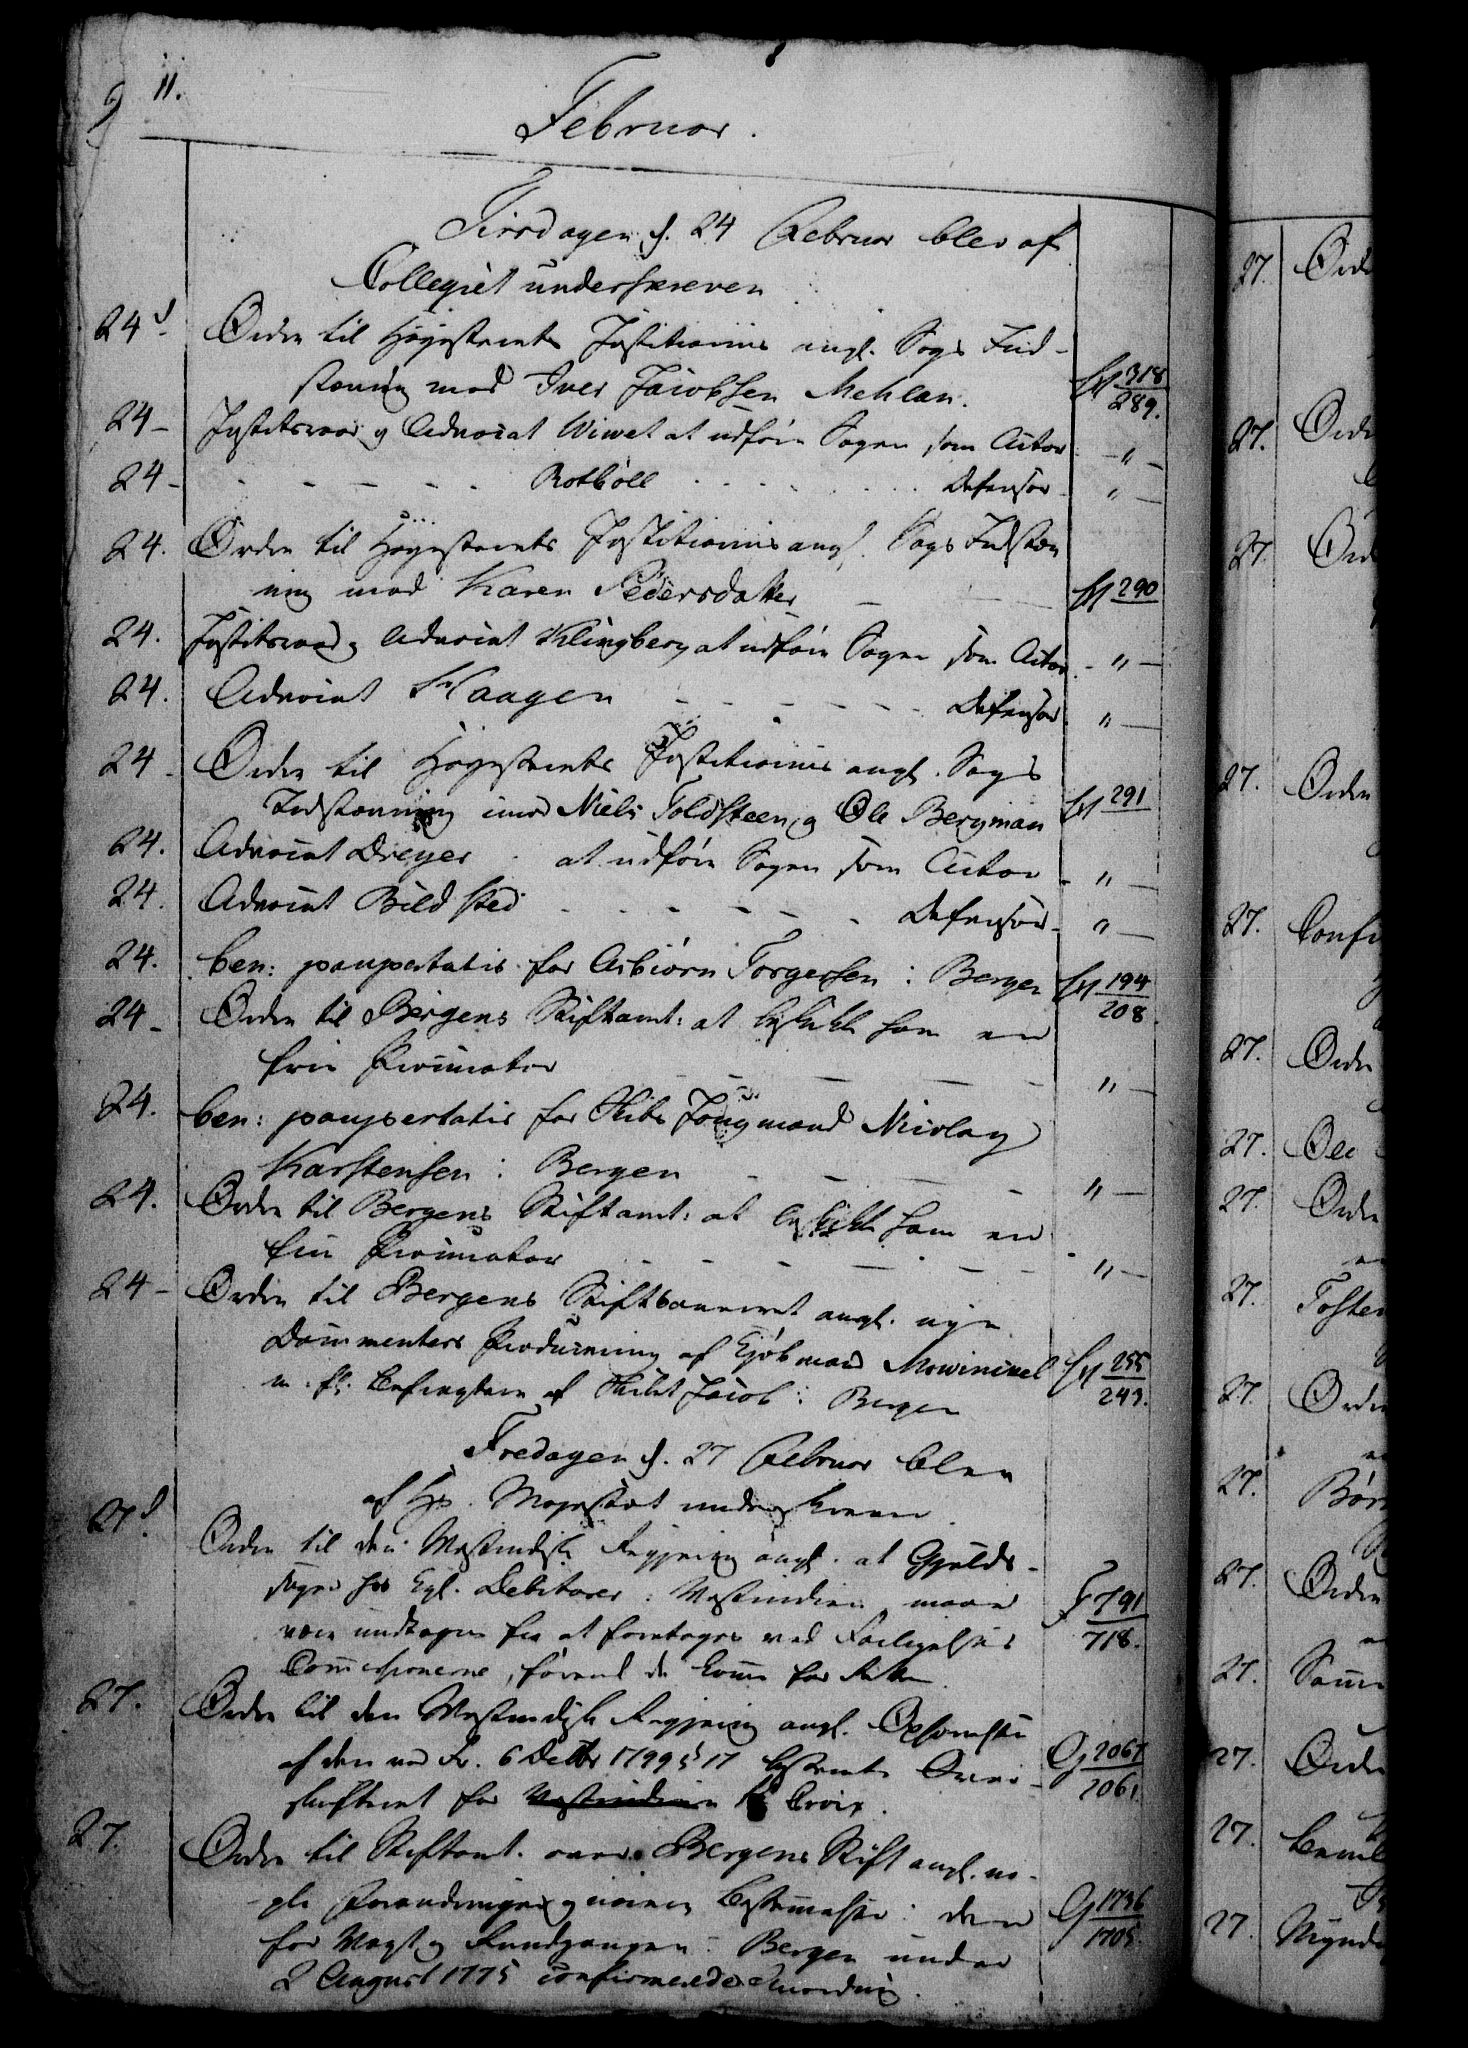 9 11.
Februar.
Tirsdagen d. 24 Februar blev af
Collegiet underskreven
24 d. Ordre til Høyesterets Justitiarius angl. Sags Ind-
stævning mod Iver Jacobsen Mehlan. 318/289.
24 - Justitsraad og Advocat Wivet at udføre Sagen som Actor - " -
24 - - - - - - Rotbøll - - - - - Defensor - " -
24. Ordre til Høyesterets Justitiarius angl. Sags Indstæv
ning mod Karen Pedersdatter - - 290
24. Justitsraad og Advocat Klingberg at udføre Sagen som Actor - " -
24. Advocat Haagen - - - - - - Defensor " -
24 - Ordre til Høyesterets Justitiarius angl. Sags
Indstævning imod Niels Toldsteen og Ole Bergman 291
24. Advocat Dreyer at udføre Sagen som Actor - " -
24. Advocat Bildsted - - - - - - Defensor - " -
24. ben: paupertatis for Asbiørn Torgersen i Bergen 194/208
24 - Ordre til Bergens Stiftamt: at beskikke ham en
frie Procurator - - - - - " -
24. ben: paupertatis for Jougmand Nicolay
Karstensen i Bergen - - - - " -
24. Ordre til Bergens Stiftamt: at beskikke ham en
frie Procurator - - - - - - " -
24 - Ordre til Bergens Stiftsoverret angl. nye
Documenters Producering af Kjøbmand Mowinckel
m. fl. af Skibet Jacob i Bergen 255/243.
Fredagen d. 27 Februar blev
af Hs. Majestæt underskreven.
27 d. Ordre til den Westindiske Regjering angl. at Gjelds-
sager hos Kgl. Debitorer i Westindien maae
være undtagne fra at foretages ved Forligelses
Commissionerne, førend de komme for Retten. F 791/718.
27. Ordre til den Westindiske Regjering angl. Ophævelse
af den ved Fr. 6 Decbr 1799 § 17 bestemte Over-
skifteret for Westindien St Croix. G 2067/2061.
27. Ordre til Stiftamt. over Bergens Stift angl. no-
gle Forandringer og nærmere Bestemmelser i den
for Vagt og Rundgangen i Bergen under
2 August 1775 confirmerede Anordning. G 1736/1705.
27. Ordr
27. Ordr
27. Ord
27. Ordre
27. Confir
27. Ordre
27. Ole
27. Ordre
27. Tosten
27. Ordre
27. Bør
27. Ordre
27. Samme
27. Ordre
27. Bevil
27. Mynd